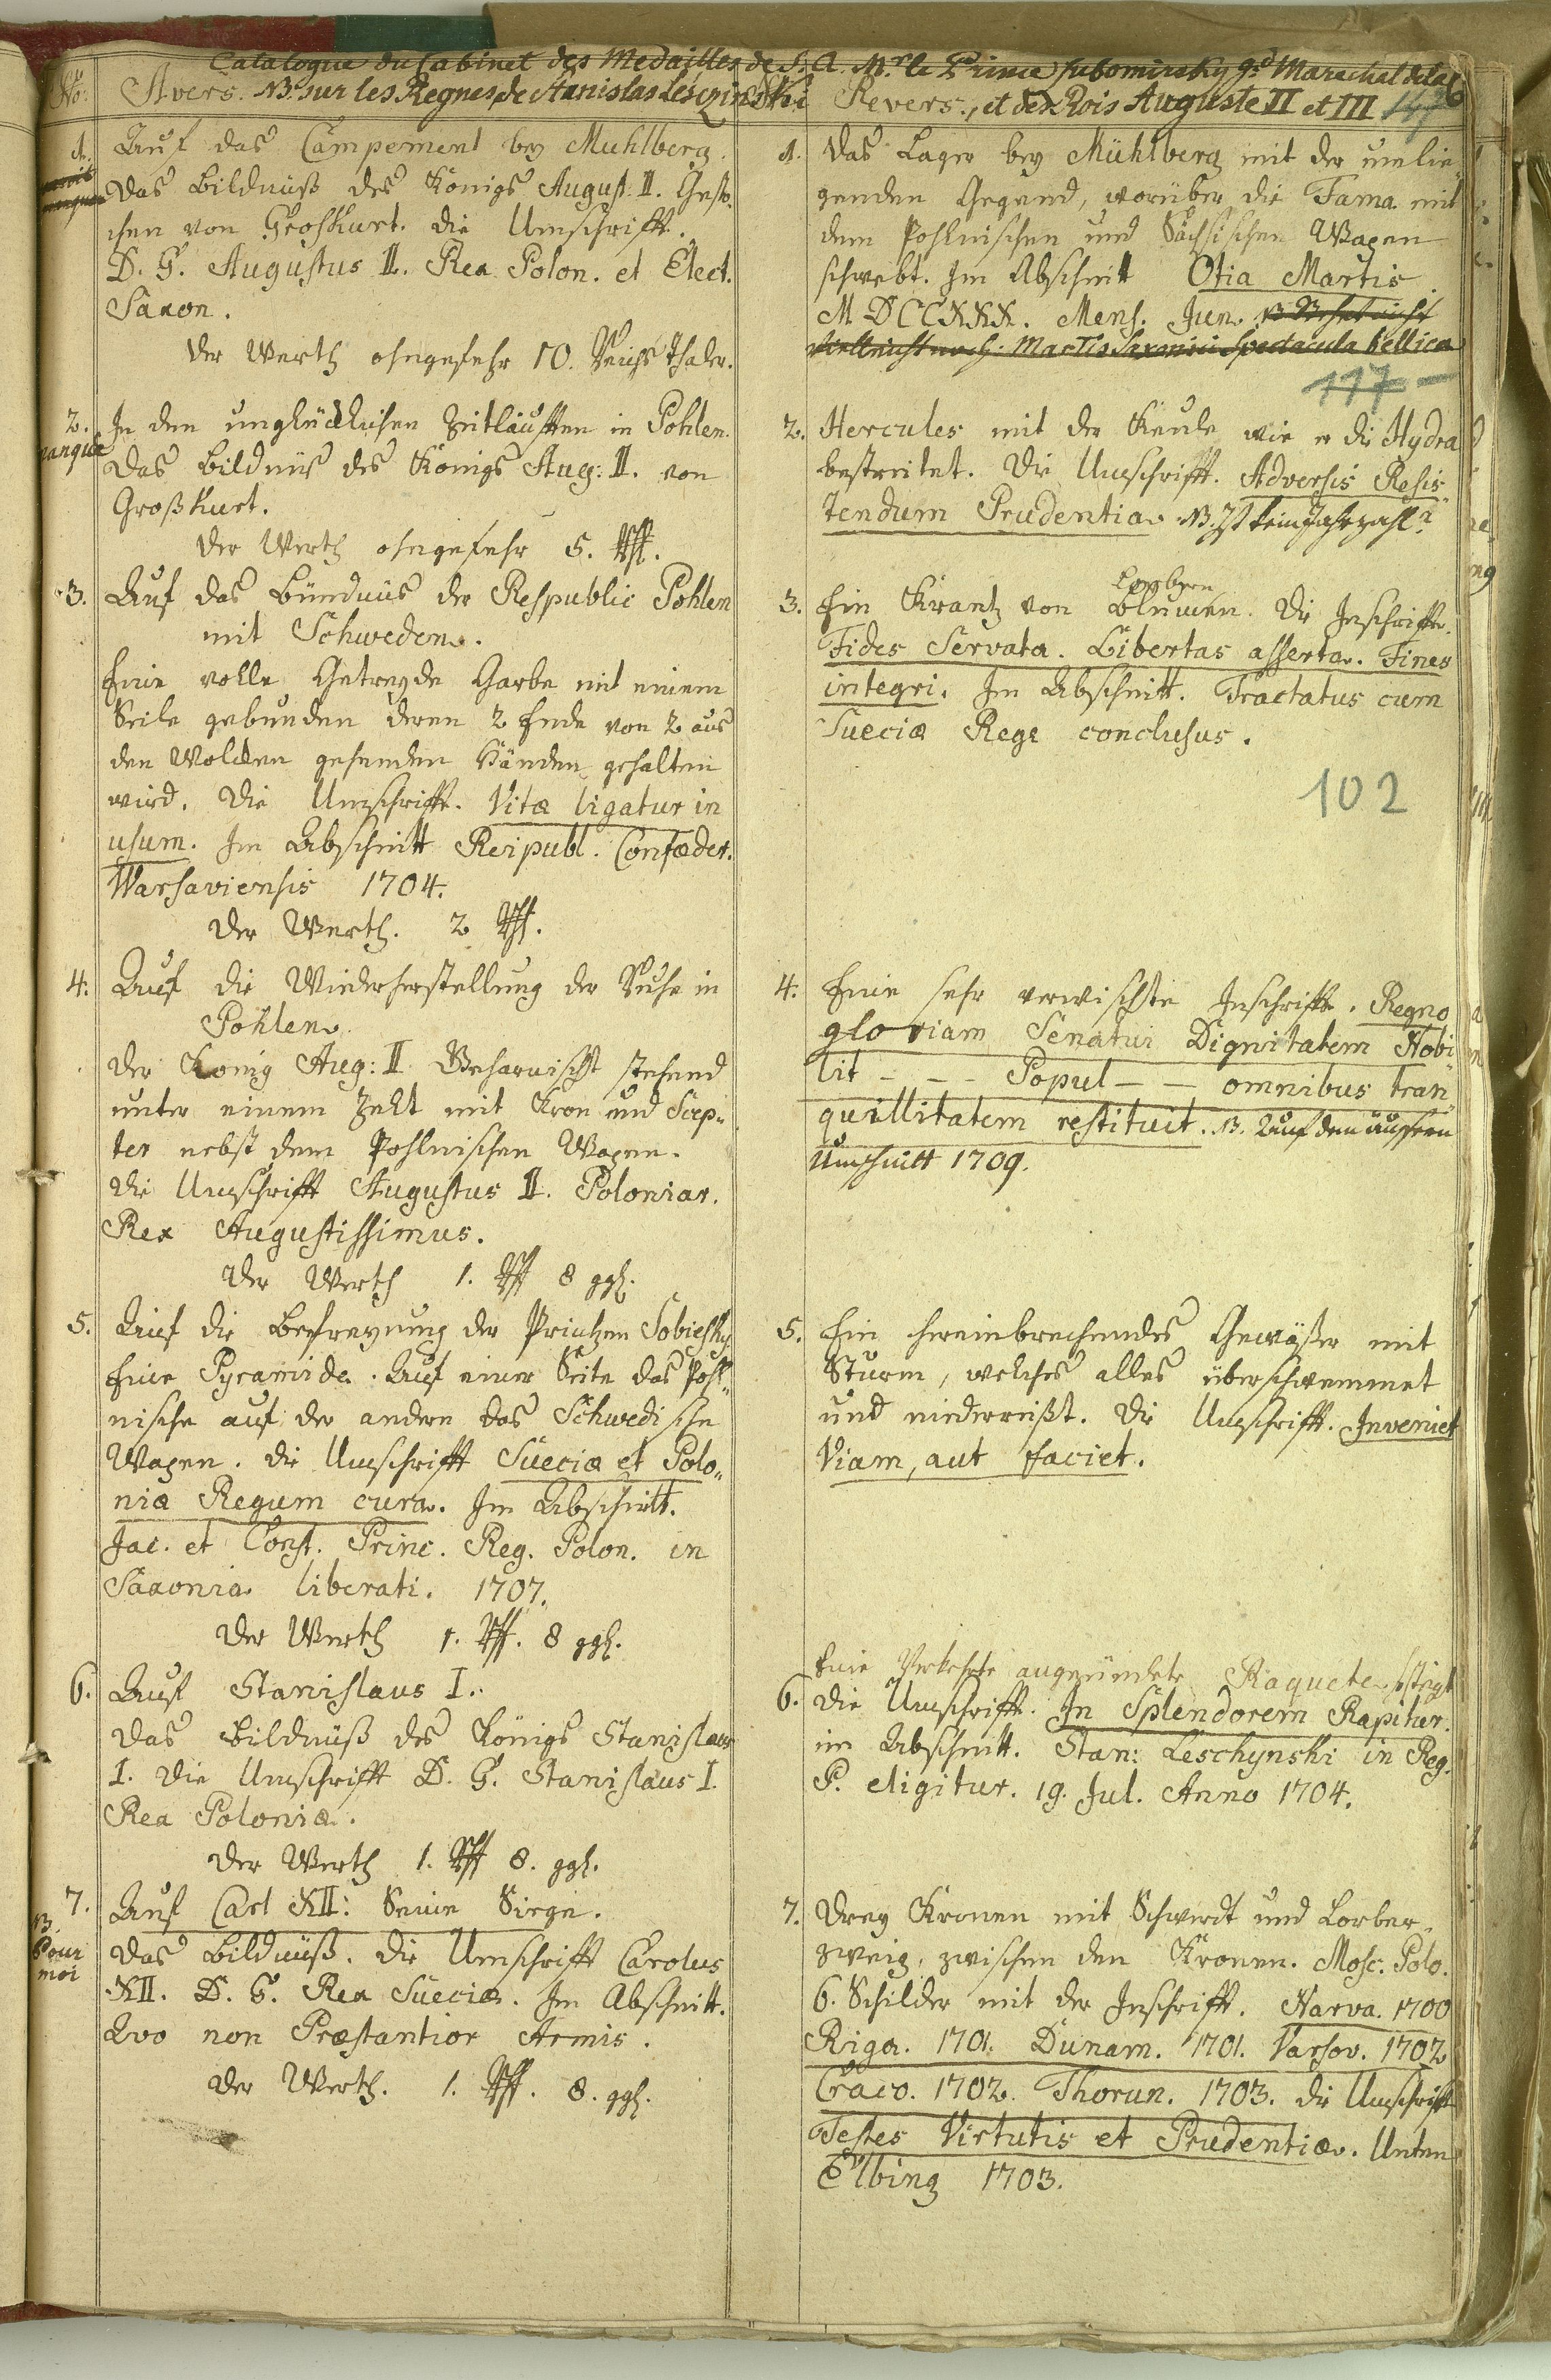 Catalogue du Cabinet des Medailles de S. A. Mr. le Prince Lubomirsky gd. Marechal de la C
No. Avers. NB. sur les Regnes de Stanislas Lesczinski Revers., et des Rois Auguste II et III
147
1. Auf das Campement bey Muhlberg.
Das Bildnüß des Königs August. II. Gesto-
chen von Groskurt. die Umschrifft.
D. G. Augustus II. Rex Polon. et Elect.
Saxon.
Der Werth ohngefehr 10. Reichs Thaler.
2. In den unglücklichen Zeitläufften in Pohlen.
manque
Das Bildnüs des Königs Aug: II. von
Großkurt.
Der Werth ohngefehr 5. Rthl.
3. Auf das Bündnüs der Respublic Pohlen
mit Schweden.
Eine volle Getreyde Garbe mit einem
Seile gebunden deren 2 Ende von 2 aus
den Wolcken gehenden Händen gehalten
wird. Die Umschrifft. Vitæ ligatur in
usum. Im Abschnitt Reipubl. Confœder.
Warsaviensis 1704.
Der Werth. 2 Rthl.
4. Auf die Wiederherstellung der Ruhe in
Pohlen.
Der König Aug: II Geharnischt stehend
unter einem Zelt mit Kron und Scep-
ter nebst dem Pohlnischen Wapen.
Die Umschrifft Augustus II. Poloniar.
Rex Augustissimus.
Der Werth 1. Rthl 8 ggl.
5. Auf die Befreyung der Printzen Sobiesky
Eine Pyramide. Auf einer Seite das Pohl-
nische auf der andern das Schwedische
Wapen. die Umschrifft Sueciæ et Polo-
niæ Regum cura. Im Abschnitt.
Jac. et Const. Princ. Reg. Polon. in
Saxonia liberati. 1707.
Der Werth 1. Rthl. 8 ggl.
6. Auf Stanislaus I.
Das Bildnüß des Königs Stanislaus
I. Die Umschrifft D. G. Stanislaus I.
Rex Poloniæ.
Der Werth 1. Rthl 8. ggl.
7. Auf Carl XII: Seine Siege.
NB. Pour moi
Das Bildnüß. Die Umschrifft Carolus
XII. D. G. Rex Sueciæ. Im Abschnitt.
Quo non Præstantior Armis.
Der Werth. 1. Rthl. 8. ggl.
1. Das Lager bey Mühlberg mit der umlie-
genden Gegend, worüber die Fama mit
dem Pohlnischen und Sächsischen Wapen
schwebt. Im Abschnitt Otia Martis
MDCCXXX. Mens. Jun.
Martis Saxonici Spectacula bellica
117 -
2. Hercules mit der Keule wie er die Hydra
bestreitet. Die Umschrifft. Adversis Resis-
tendum Prudentia. NB. Ist kein Jahrzahl?
3. Ein Krantz von Blumen. Die Inschrifft.
Lorbern
Fides Servata. Libertas asserta. Fines
integri. Im Abschnitt. Tractatus cum
Sueciæ Rege conclusus.
102
4. Eine sehr verwischte Inschrifft. Regno
gloriam Senatui Dignitatem Nobi
lit - - - Popul - - omnibus tran-
quillitatem restituit. NB. Auf dem äussern
Umschnitt 1709.
5. Ein hereinbrechendes Gewäßer mit
Sturm, welches alles überschwemmet
und niederreißt. Die Umschrifft. Inveniet
Viam, aut faciet.
Eine Verkehrte angezündete Raquete steigt
6. Die Umschrifft. In Splendorem Rapitur.
im Abschnitt. Stan: Leschynski in Reg.
P. eligitur. 19. Jul. Anno 1704.
7. Drey Kronen mit Schwerdt und Lorber-
zweig, zwischen den Kronen. Mosc. Polo.
6. Schilder mit der Inschrifft. Narva. 1700
Riga. 1701. Dunam. 1701. Varsov. 1702
Craco. 1702. Thorun. 1703. die Umschrifft
Testes Virtutis et Prudentiæ. Unten
Elbing 1703.